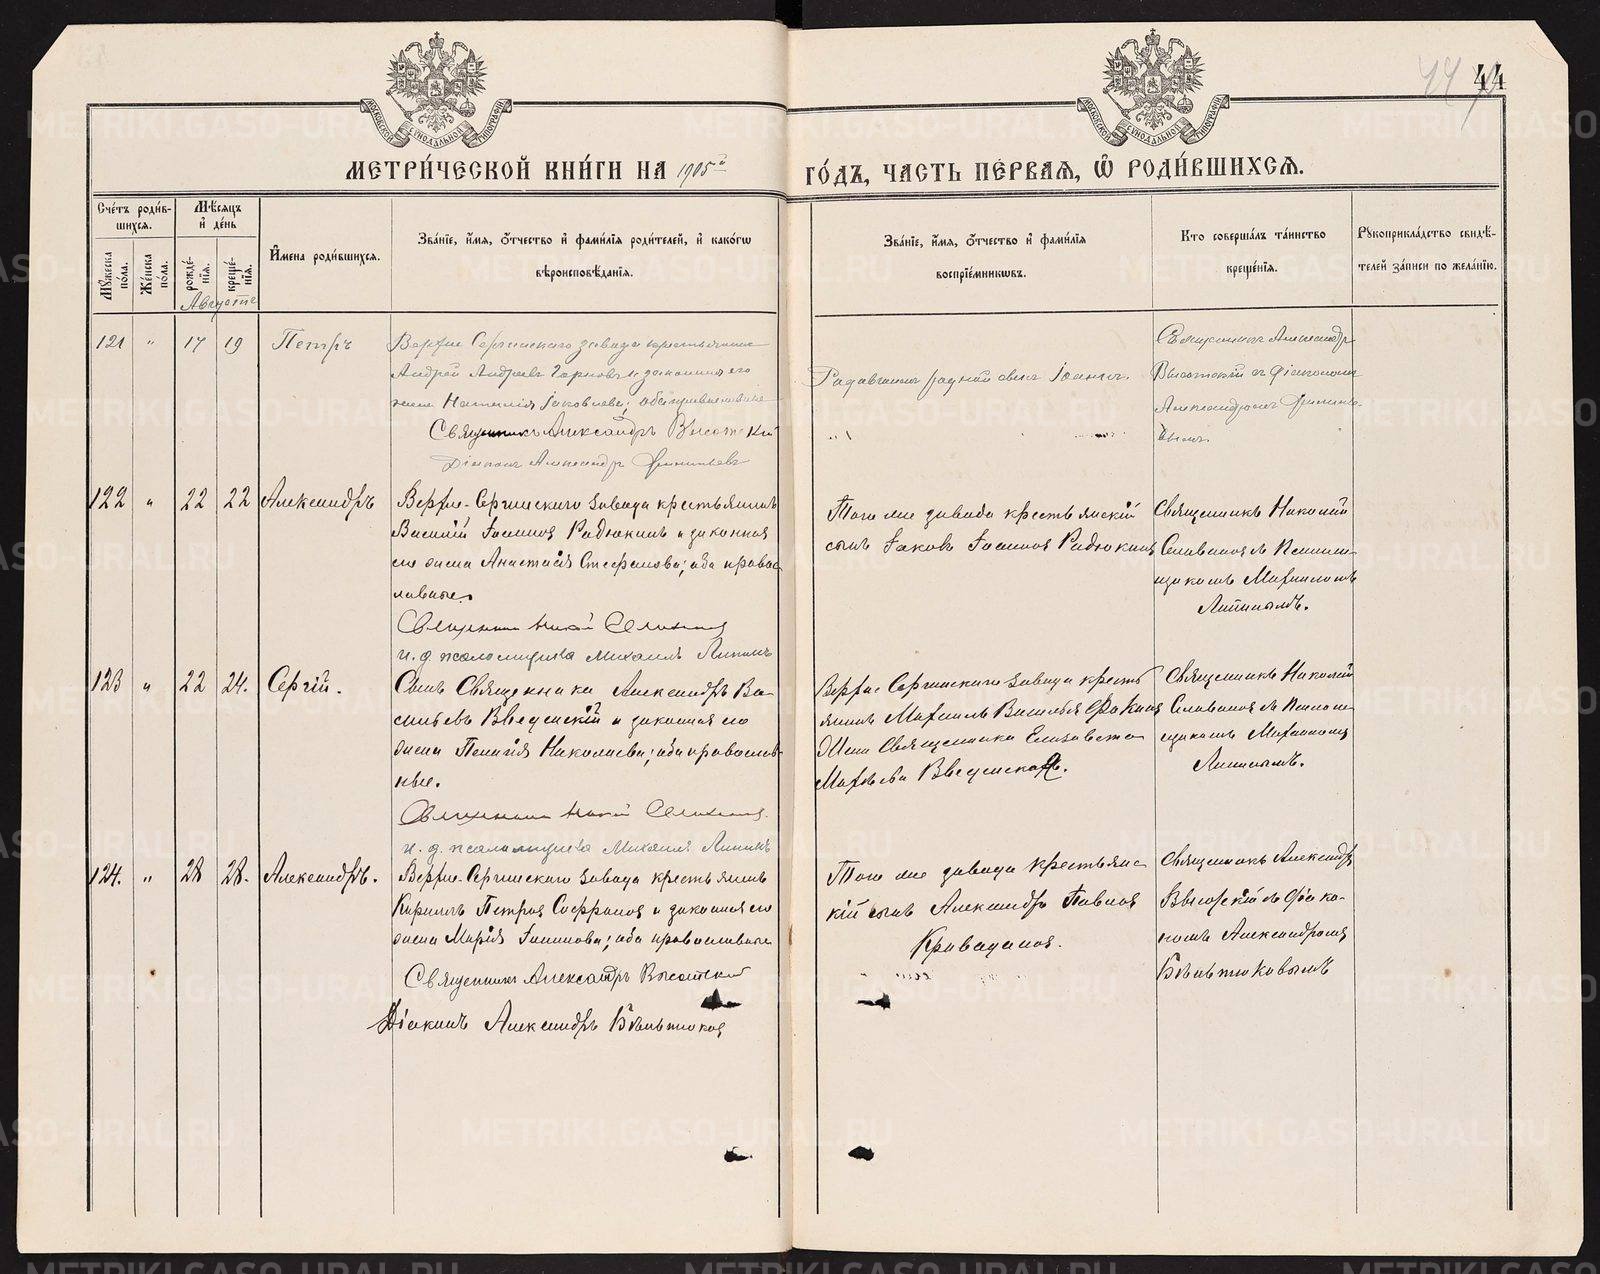 44
МЕТРИ́ЧЕСКОЙ КНИ́ГИ НА 1905й ГО́ДЪ, ЧАСТЬ ПЕ́РВАѦ, Ѽ РОДИ́ВШИХСѦ.
Сче́тъ роди́вшихсѧ.
Мꙋ́жеска по́ла.
Же́нска по́ла.
Мѣ́сѧцъ и҆ де́нь
рожде́нїѧ.
креще́нїѧ.
И҆мена роди́вшихсѧ.
Зва́нїе, и҆́мѧ, ѻ҆́тчество и҆ фами́лїѧ роди́телей, и҆ како́гѡ
вѣроисповѣ́данїѧ.
Зва́нїе, и҆́мѧ, ѻ҆́тчество и҆ фами́лїѧ
воспрїе́мникѡвъ.
Кто соверша́лъ та́инство
креще́нїѧ.
Рꙋкоприкла́дство свидѣ́-
телей за́писи по жела́нїю.
Августъ
121 " 17 19 Петръ
Верхне Сергинскаго завода крестьянинъ
Андрей Андреевъ и законная его
жена Наталія Іаковлева; оба православные
Священникъ Александръ Высотскій
Діаконъ Александръ
родной сынъ Іоаннъ.
Священникъ Александръ
Высотскій съ Діакономъ
Александромъ
122 " 22 22 Александръ
Верхне-Сергинскаго завода крестьянинъ
Василій Іоанновъ Радюкинъ и законная
его жена Анастасія Стефанова; оба правос
лавные.
Священникъ
и. д. псаломщика Михаилъ Липинъ
Того же завода крестьянскій
сынъ Іаковъ Іоанновъ Радюкинъ
Священникъ Николай
съ Псалом-
щикомъ Михаиломъ
Липинымъ.
123 " 22 24. Сергій.
Сынъ Священника Александръ Ва-
сильевъ Введенскій и законная его
жена Пелагія Николаева; оба православ-
ные.
Священникъ
и. д. псаломщика Михаилъ Липинъ
Верхне-Сергинскаго завода кресть
янинъ Михаилъ Васильевъ
Жена Священника Елизавета
Введенская.
Священникъ Николай
съ Псалом-
щикомъ Михаиломъ
Липинымъ.
124. " 28 28. Александръ.
Верхне-Сергинскаго завода крестьянинъ
Кириллъ Петровъ Софроновъ и законная его
жена Марія; оба православные
Священникъ Александръ Высотскій
Діаконъ Александръ
Того же завода крестьянс-
кій сынъ Александръ Павловъ
Священникъ Александръ
Высотскій съ Діако-
номъ Александромъ
METRIKI.GASO-URAL.RU